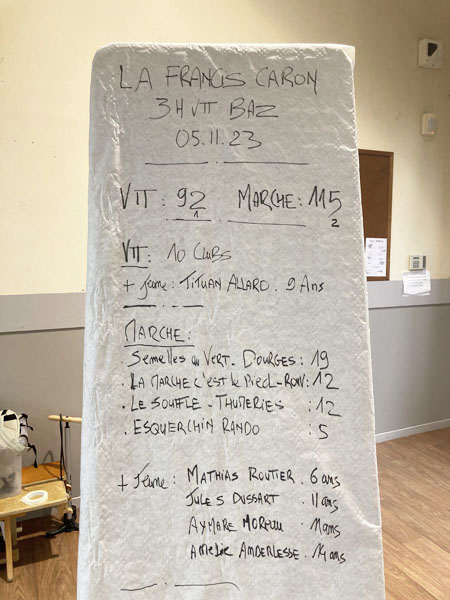 LA FRANCIS CARON
3H VTT BAZ
05.11.23
VTT : 92 MARCHE : 115
1 2
VTT : 10 CLUBS
+ Jeune : TITUAN ALLARD . 9 Ans
MARCHE :
Semelles au VERT . DOURGES : 19
. LA MARCHE C'est le PIED - : 12
. LE SOUFFLE - THUMERIES : 12
. ESQUERCHIN RANDO : 5
+ Jeune : MATHIAS ROUTIER . 6 ans
JULES DUSSART . 11 ans
AYMARE . 11 ans
AMELIE ANDERLESSE . 14 ans